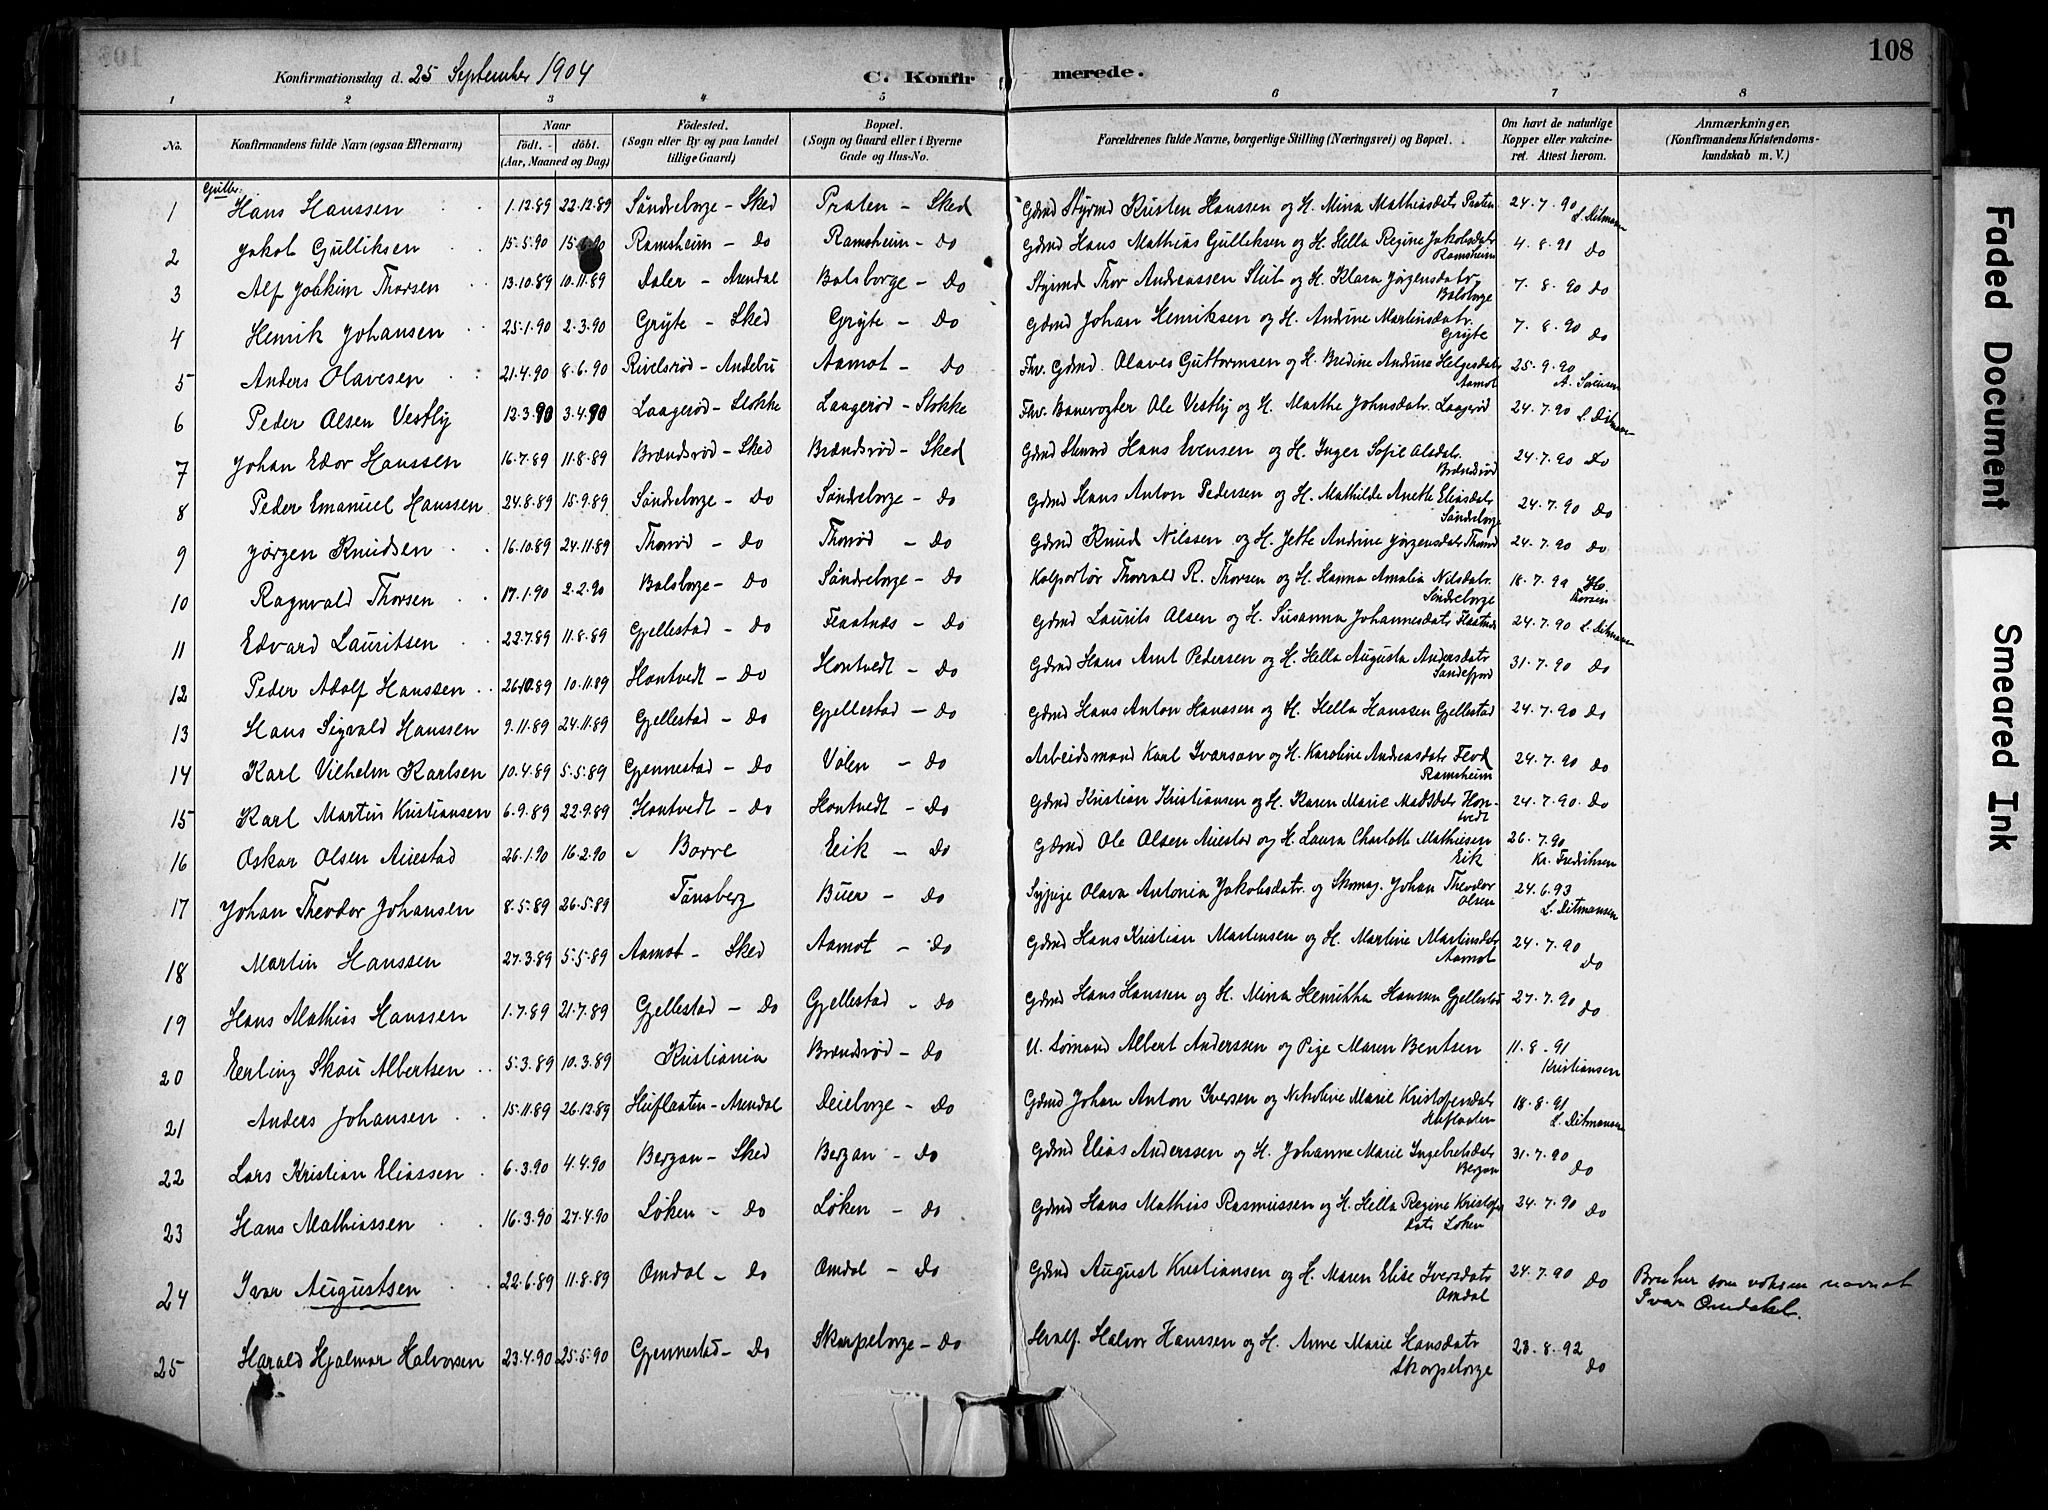 108
Konfirmationsdag d. 25 September 1904 C. Konfirmerede.
1 2 3 4 5 6 7 8
No. Konfirmandens fulde Navn (ogsaa Efternavn) Naar født. døbt. (Aar, Maaned og Dag) Fødested. (Sogn eller By og paa Landet tillige Gaard) Bopæl. (Sogn og Gaard eller i Byerne Gade og Hus-No. Forældrenes fulde Navne, borgerlige Stilling (Næringsvei) og Bopæl. Om havt de naturlige Kopper eller vakcineret. Attest herom. Anmærkninger. (Konfirmandens Kristendomskundskab m. V.)
Gutter.
1 Hans Hanssen 1.12.89 22.12.89 Søndreborge - Sked Praten - Sked Gdmd Styrmd Kristen Hanssen og H. Mina Mathiasdatr Praten 24.7.90 L. Ditmansen
2 Jakob Gulliksen 15.5.90 15.6.90 Ramsheim - Do Ramsheim - Do Gdmd Hans Mathias Gulliksen og H. Hella Regine Jakobsdatr Ramsheim 4.8.91 Do
3 Alf Joakim Thorsen 13.10.89 10.11.89 Daler - Arendal Balsborge - Do Styrmd Thor Andreassen Slut og H. Klara Jørgensdatr. Balsborge 7.8.90 Do
4 Henrik Johansen 25.1.90 2.3.90 Gryte - Sked Gryte - Do Gdmd Johan Henriksen og H. Andrine Martinsdatr. Gryte 7.8.90 Do
5 Anders Olavesen 21.4.90 8.6.90 Rivelsrød - Andebu Aamot - Do Fhv. Gdmd. Olaves Guttormsen og H. Bredine Andrine Helgesdatr Aamot 25.9.90 A. Sørensen
6 Peder Olsen Vestly 12.3.90 3.4.90 Laagerød - Stokke Laagerød - Stokke Fhv. Banevogter Ole Vestly og H. Marthe Johnsdatr. Laagerød 24.7.90 L. Ditmansen
7 Johan Edor Hanssen 16.7.89 11.8.89 Brændsrød - Sked Brændsrød - Sked Gdmd Hans Evensen og H. Inger Sofie Olsdatr. Brændsrød 24.7.90 Do
8 Peder Emanuel Hanssen 24.8.89 15.9.89 Søndreborge - Do Søndreborge - Do Gdmd Hans Anton Pedersen og H. Mathilde Anette Eliasdatr Søndreborge 24.7.90 Do
9 Jørgen Knudsen 16.10.89 24.11.89 Thorød - Do Thorød - Do Gdmd Knud Nilssen og H. Jette Andrine Jørgensdatr Thorød 24.7.90 Do
10 Ragnvald Thorsen 17.1.90 2.2.90 Balsborge - Do Søndreborge - Do Kolportør Thorvald R. Thorsen og H. Hanna Amalia Nilsdatr. Søndreborge 18.7.99 Thorsen
11 Edvard Lauritsen 22.7.89 11.8.89 Gjellestad - Do Flaatnes - Do Gdmd Laurits Olsen og H. Susanna Johannesdatr Flaatnes 24.7.90 L. Ditmansen
12 Peder Adolf Hanssen 26.10.89 10.11.89 Hontvedt - Do Hontvedt - Do Gdmd Hans Amt Pedersen og H. Hella Augusta Andersdatr Sandefjord 31.7.90 Do
13 Hans Sigvald Hanssen 9.11.89 24.11.89 Gjellestad - Do Gjellestad - Do Gdmd Hans Anton Hanssen og H. Hella Hanssen Gjellestad 24.7.90 Do
14 Karl Vilhelm Karlsen 10.4.89 5.5.89 Gjennestad - Do Volen - Do Arbeidsmand Karl Ivarson og H. Karoline Andreasdatr Flod Ramsheim 24.7.90 Do
15 Karl Martin Kristiansen 6.9.89 22.9.89 Hontvedt - Do Hontvedt - Do Gdmd Kristian Kristiansen og H. Karen Marie Madsdatr Hontvedt 24.7.90 Do
16 Oskar Olsen Auestad 26.1.90 16.2.90 Borre Eik - Do Gdmd Ole Olsen Auestad og H. Laura Charlotte Mathiesen Eik 26.7.90 Kr. Fredriksen
17 Johan Theodor Johansen 8.5.89 26.5.89 Tønsberg Buer - Do Sypige Olava Antonia Jakobsdatr. og Skomag. Johan Theodor Olsen 24.6.93 L. Ditmansen
18 Martin Hanssen 27.3.89 5.5.89 Aamot - Sked Aamot - Do Gdmd Hans Kristian Martensen og H. Martine Martinsdatr Aamot 24.7.90 Do
19 Hans Mathias Hanssen 1.7.89 21.7.89 Gjellestad - Do Gjellestad - Do Gdmd Hans Hanssen og H. Mina Henrikka Hanssen Gjellestad 27.7.90 Do
20 Eerling Skau Albertsen 5.3.89 10.3.89 Kristiania Brændsrød - Do U. Sømand Albert Anderssen og Pige Maren Bentsen 11.8.91 Kristiansen
21 Anders Johansen 15.11.89 26.12.89 Heiflaaten - Arendal Deieborge - Do Gdmd Johan Anton Iversen og Nikoline Marie Kristofersdatr Heiflaaten 18.8.91 L. Ditmansen
22 Lars Kristian Eliassen 6.3.90 4.4.90 Bergan - Sked Bergan - Do Gdmd Elias Anderssen og H. Johanne Marie Ingebretsdatr Bergan 31.7.90 Do
23 Hans Mathiassen 16.3.90 27.4.90 Løken - Do Løken - Do Gdmd Hans Mathias Rasmussen og H. Hella Regine Kristofersdatr Løken 24.7.90 Do
24 Ivar Augustsen 22.6.89 11.8.89 Omdal - Do Omdal - Do Gdmd August Kristiansen og H. Maren Elise Iversdatr Omdal 24.7.90 Do Bruker som voksen navnet Ivar Omdahl.
25 Harald Hjalmar Halvorsen 23.4.90 25.5.90 Gjennestad - Do Skarpeborge - Do Halvor Hanssen og H. Anne Marie Hansdatr Skarpeborge 23.8.92 Do
Faded Document
Smeared Ink